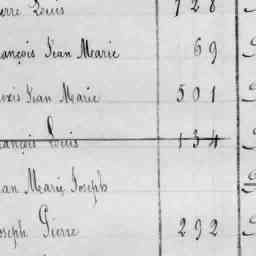 erre Louis 728
ançois Jean Marie 69
exis Jean Marie 501
ançois Louis 134
ean Marie Joseph
oseph Pierre 292